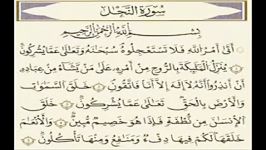 سُورَةُ النَّحْلِ
بِسْمِ اللَّهِ الرَّحْمَٰنِ الرَّحِيمِ
أَتَىٰ أَمْرُ اللَّهِ فَلَا تَسْتَعْجِلُوهُ سُبْحَانَهُ وَتَعَالَىٰ عَمَّا يُشْرِكُونَ
يُنَزِّلُ الْمَلَائِكَةَ بِالرُّوحِ مِنْ أَمْرِهِ عَلَىٰ مَن يَشَاءُ مِنْ عِبَادِهِ
أَنْ أَنذِرُوا أَنَّهُ لَا إِلَٰهَ إِلَّا أَنَا فَاتَّقُونِ خَلَقَ السَّمَاوَاتِ
وَالْأَرْضَ بِالْحَقِّ تَعَالَىٰ عَمَّا يُشْرِكُونَ خَلَقَ
الْإِنسَانَ مِن نُّطْفَةٍ فَإِذَا هُوَ خَصِيمٌ مُّبِينٌ وَالْأَنْعَامَ
خَلَقَهَا لَكُمْ فِيهَا دِفْءٌ وَمَنَافِعُ وَمِنْهَا تَأْكُلُونَ